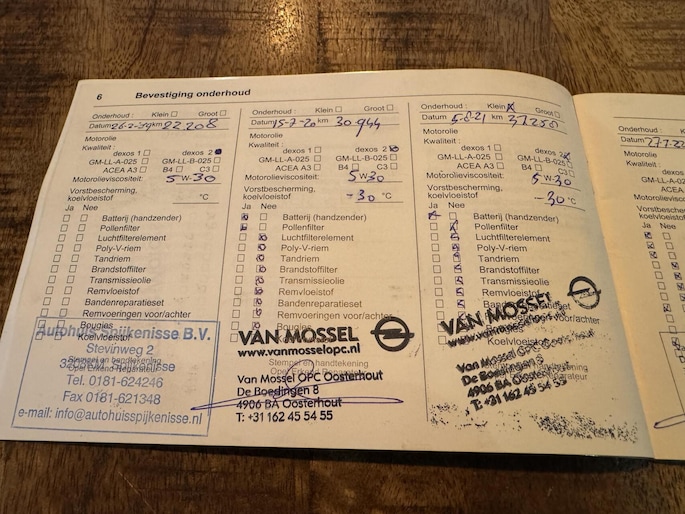 6 Bevestiging onderhoud
Onderhoud : Klein Groot
Datum 26-2-19 km 22.208
Motorolie
Kwaliteit :
dexos 1 dexos 2
GM-LL-A-025 GM-LL-B-025
ACEA A3 B4 C3
Motorolieviscositeit: 5 W-30
Vorstbescherming,
koelvloeistof °C
Ja Nee
Batterij (handzender)
Pollenfilter
Luchtfilterelement
Poly-V-riem
Tandriem
Brandstoffilter
Transmissieolie
Remvloeistof
Bandenreparatieset
Remvoeringen voor/achter
Bougies
Koelvloeistof
Autohuis Spijkenisse B.V.
Stevinweg 2
Stempel en handtekening
Tel. 0181-624246
Fax 0181-621348
e-mail: info@autohuisspijkenisse.nl
Onderhoud : Klein Groot
Datum 15-7-20 km 30.944
Motorolie
Kwaliteit :
dexos 1 dexos 2
GM-LL-A-025 GM-LL-B-025
ACEA A3 B4 C3
Motorolieviscositeit: 5 W-30
Vorstbescherming,
koelvloeistof -30 °C
Ja Nee
Batterij (handzender)
Pollenfilter
Luchtfilterelement
Poly-V-riem
Tandriem
Brandstoffilter
Transmissieolie
Remvloeistof
Bandenreparatieset
Remvoeringen voor/achter
Bougies
VAN MOSSEL
www.vanmosselopc.nl
Stempel en handtekening
Van Mossel OPC Oosterhout
De Boedingen 8
4906 BA Oosterhout
T: +31 162 45 54 55
Onderhoud : Klein Groot
Datum 5-8-21 km 37.250
Motorolie
Kwaliteit :
dexos 1 dexos 2
GM-LL-A-025 GM-LL-B-025
ACEA A3 B4 C3
Motorolieviscositeit: 5 W-30
Vorstbescherming,
koelvloeistof -30 °C
Ja Nee
Batterij (handzender)
Pollenfilter
Luchtfilterelement
Poly-V-riem
Tandriem
Brandstoffilter
Transmissieolie
Remvloeistof
Bandenreparatieset
Remvoeringen voor/achter
Bougies
Koelvloeistof
VAN MOSSEL
www.vanmosselopc.nl
Van Mossel OPC
De Boedingen 8
4906 BA Oosterhout
T: +31 162 45 54 55
Onderhoud
Datum
Motorolie
Kwaliteit :
Motorolieviscositeit
koelvloeistof
Ja Nee